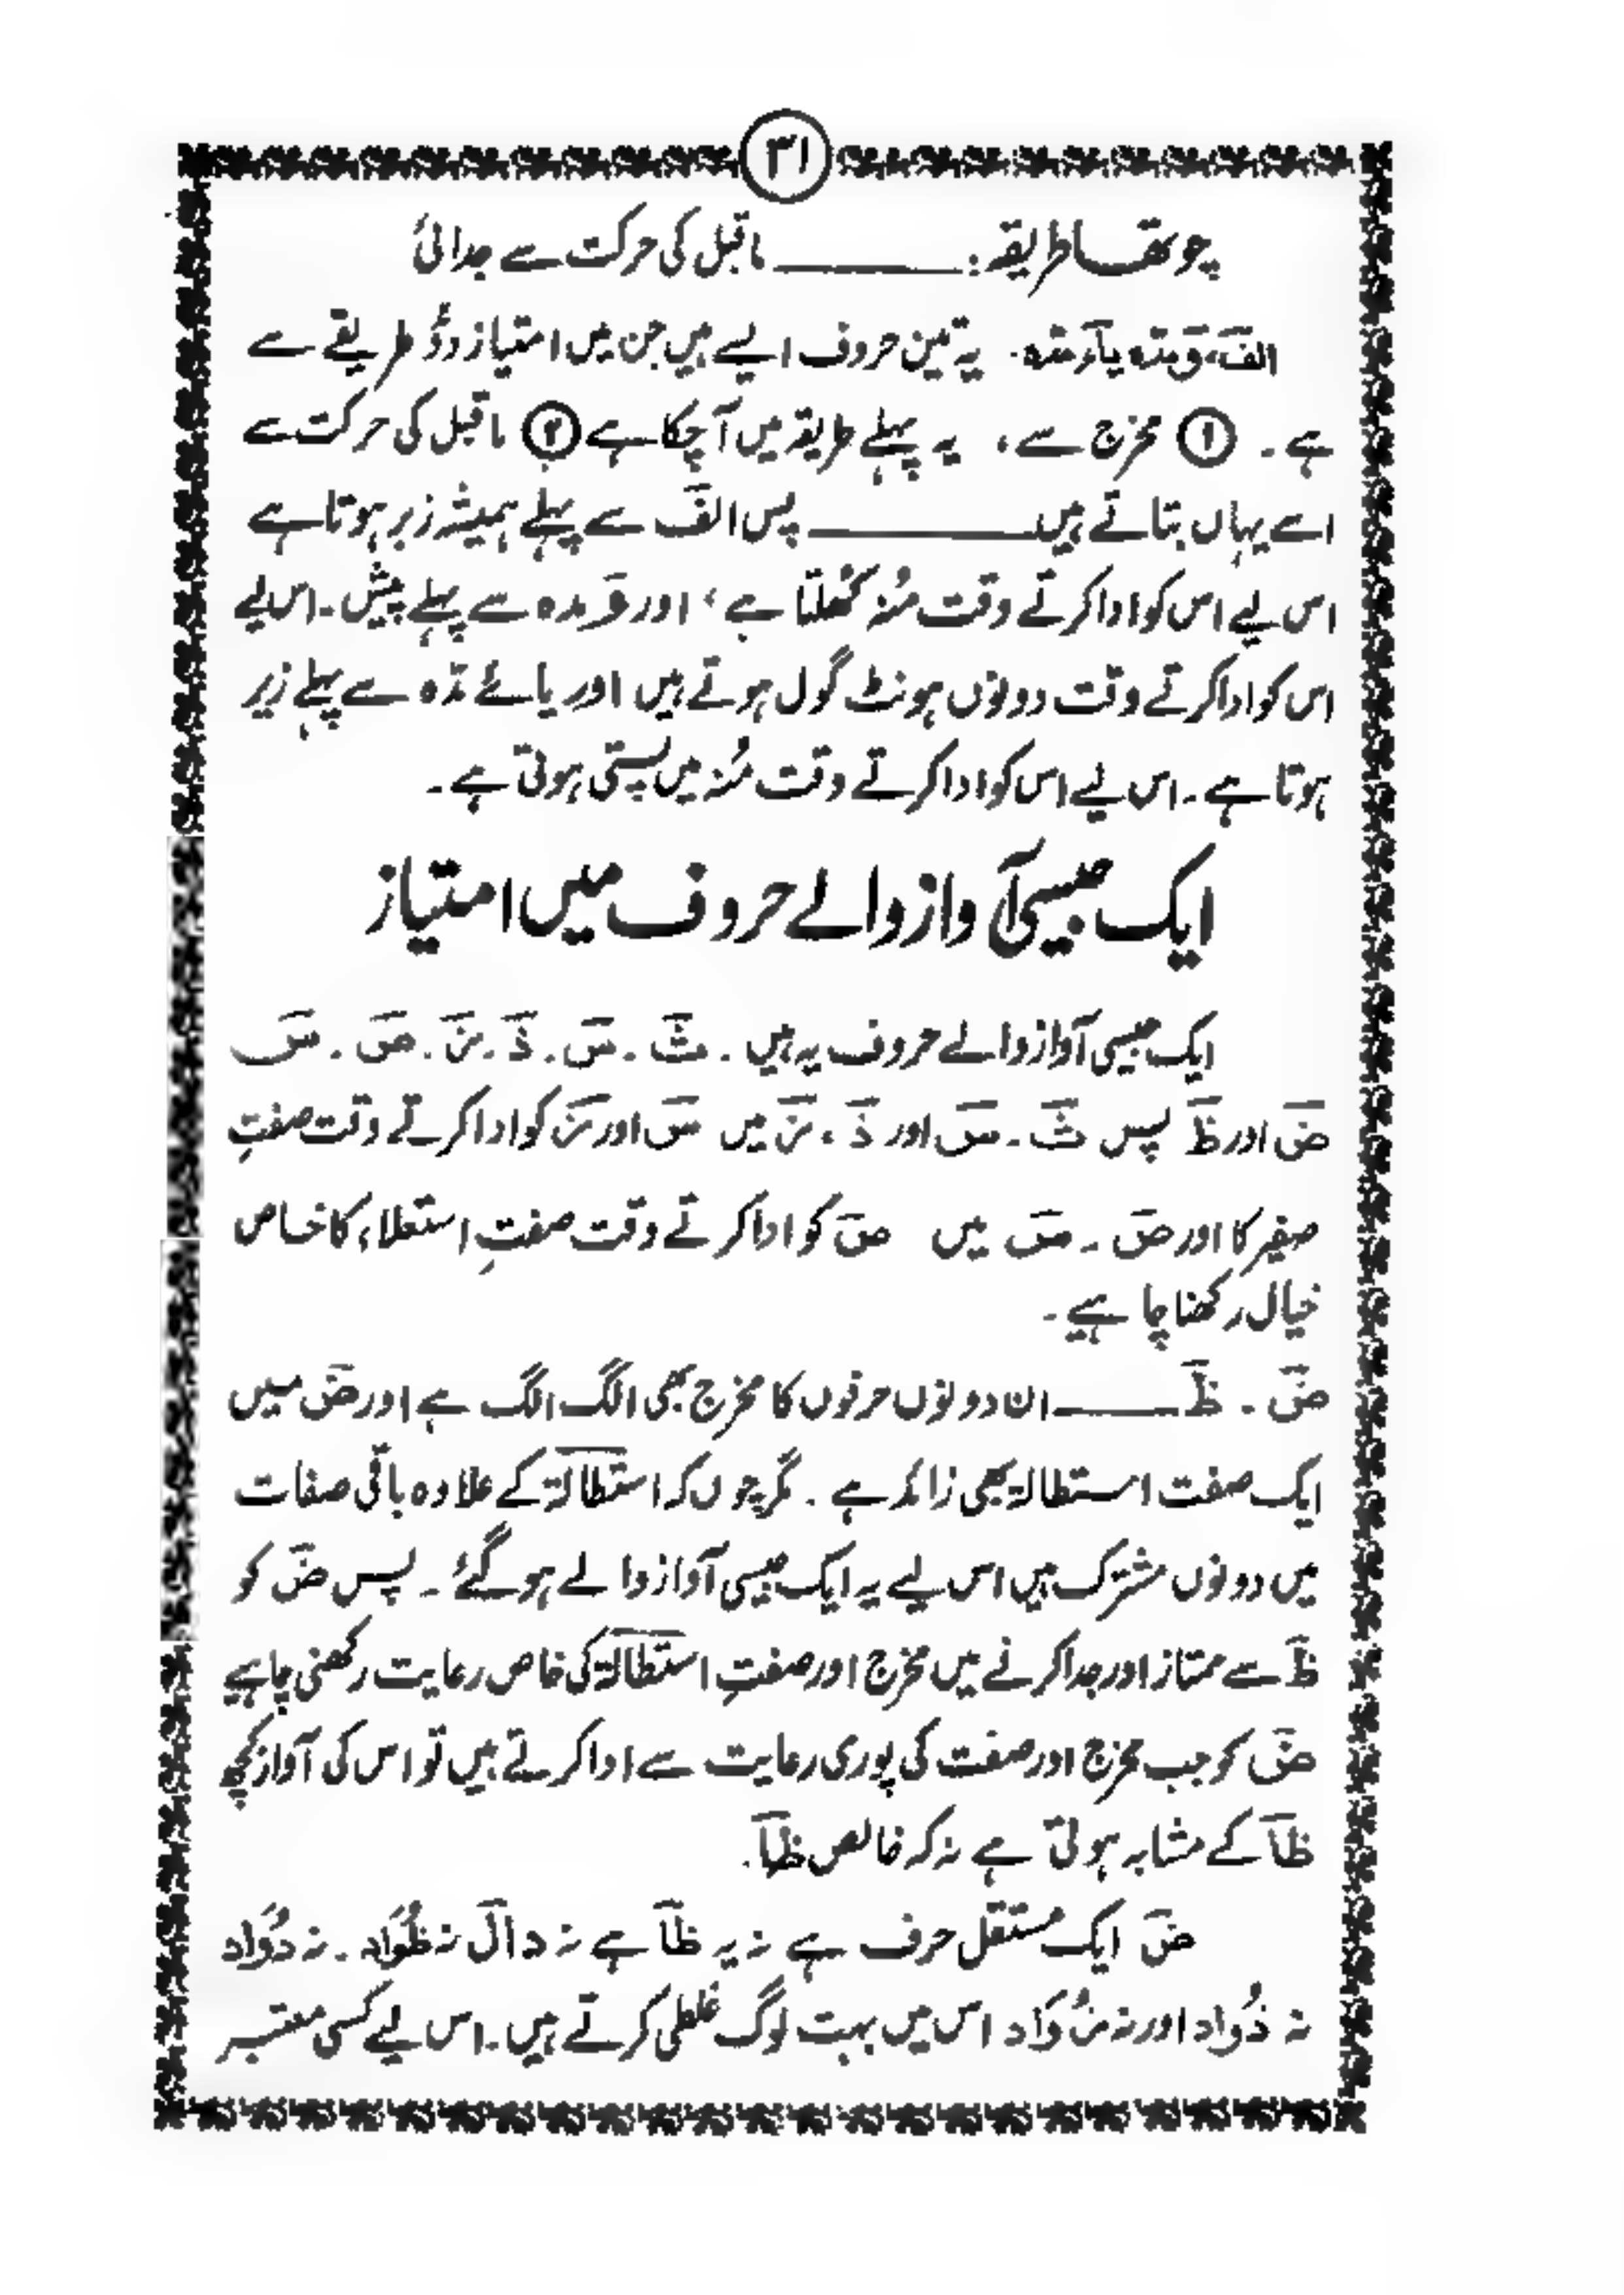 ۳۱
چوتھا طریقہ :ـــــــــ ماقبل کی حرکت سے جدائی
الف، وَ مدّہ یاَء مدّہ۔ یہ تین حروف ایسے ہیں جن میں امتیاز دوُ طریقے سے
ہے ۔ ① مخرج سے، یہ پہلے طریقہ میں آچکا ہے ② ماقبل کی حرکت سے
اسے یہاں بتاتے ہیں ـــــــــ پس الف سے پہلے ہمیشہ زبر ہوتا ہے
اس لیے اس کو ادا کرتے وقت مُنہ کُھلتا ہے ، اور وَ مدہ سے پہلے پیش ۔ اس لیے
اس کو ادا کرتے وقت دونوں ہونٹ گول ہوتے ہیں اور یائے مدّہ سے پہلے زیر
ہوتا ہے ۔ اس لیے اس کو ادا کرتے وقت مُنہ میں پستی ہوتی ہے ۔
ایک جیسی آواز والے حروف میں امتیاز
ایک جیسی آواز والے حروف یہ ہیں ۔ ثَ ۔ سَ ۔ ذَ ۔ زَ ۔ صَ ۔ سَ
ضَ اور ظَ پس ثَ ۔ سَ اور ذَ ، زَ میں سَ اور زَ کو ادا کرتے وقت صفتِ
صفیر کا اور صَ ۔ سَ میں صَ کو ادا کرتے وقت صفتِ استعلاء کا خاص
خیال رکھنا چاہیے ۔
ضَ ۔ ظَ ـــــــــ ان دونوں حرفوں کا مخرج بھی الگ الگ ہے اور ضَ میں
ایک صفت استطالۃ بھی زائد ہے ۔ مگر چوں کہ استطالۃ کے علاوہ باقی صفات
میں دونوں مشترک ہیں اس لیے یہ ایک جیسی آواز والے ہو گئے ۔ پس ضَ کو
ظَ سے ممتاز اور جدا کرنے میں مخرج اور صفتِ استطالۃ کی خاص رعایت رکھنی چاہیے
ضَ کو جب مخرج اور صفت کی پوری رعایت سے ادا کرتے ہیں تو اس کی آواز کچھ
ظاَ کے مشابہ ہوتی ہے نہ کہ خالص ظاَ۔
ضَ ایک مستقل حرف ہے نہ یہ ظاَ ہے نہ دال نہ ظُوَاد ۔ نہ دُوَاد
نہ ذُواد اور نہ زُوَاد اس میں بہت لوگ غلطی کرتے ہیں ۔ اس لیے کسی معتبر